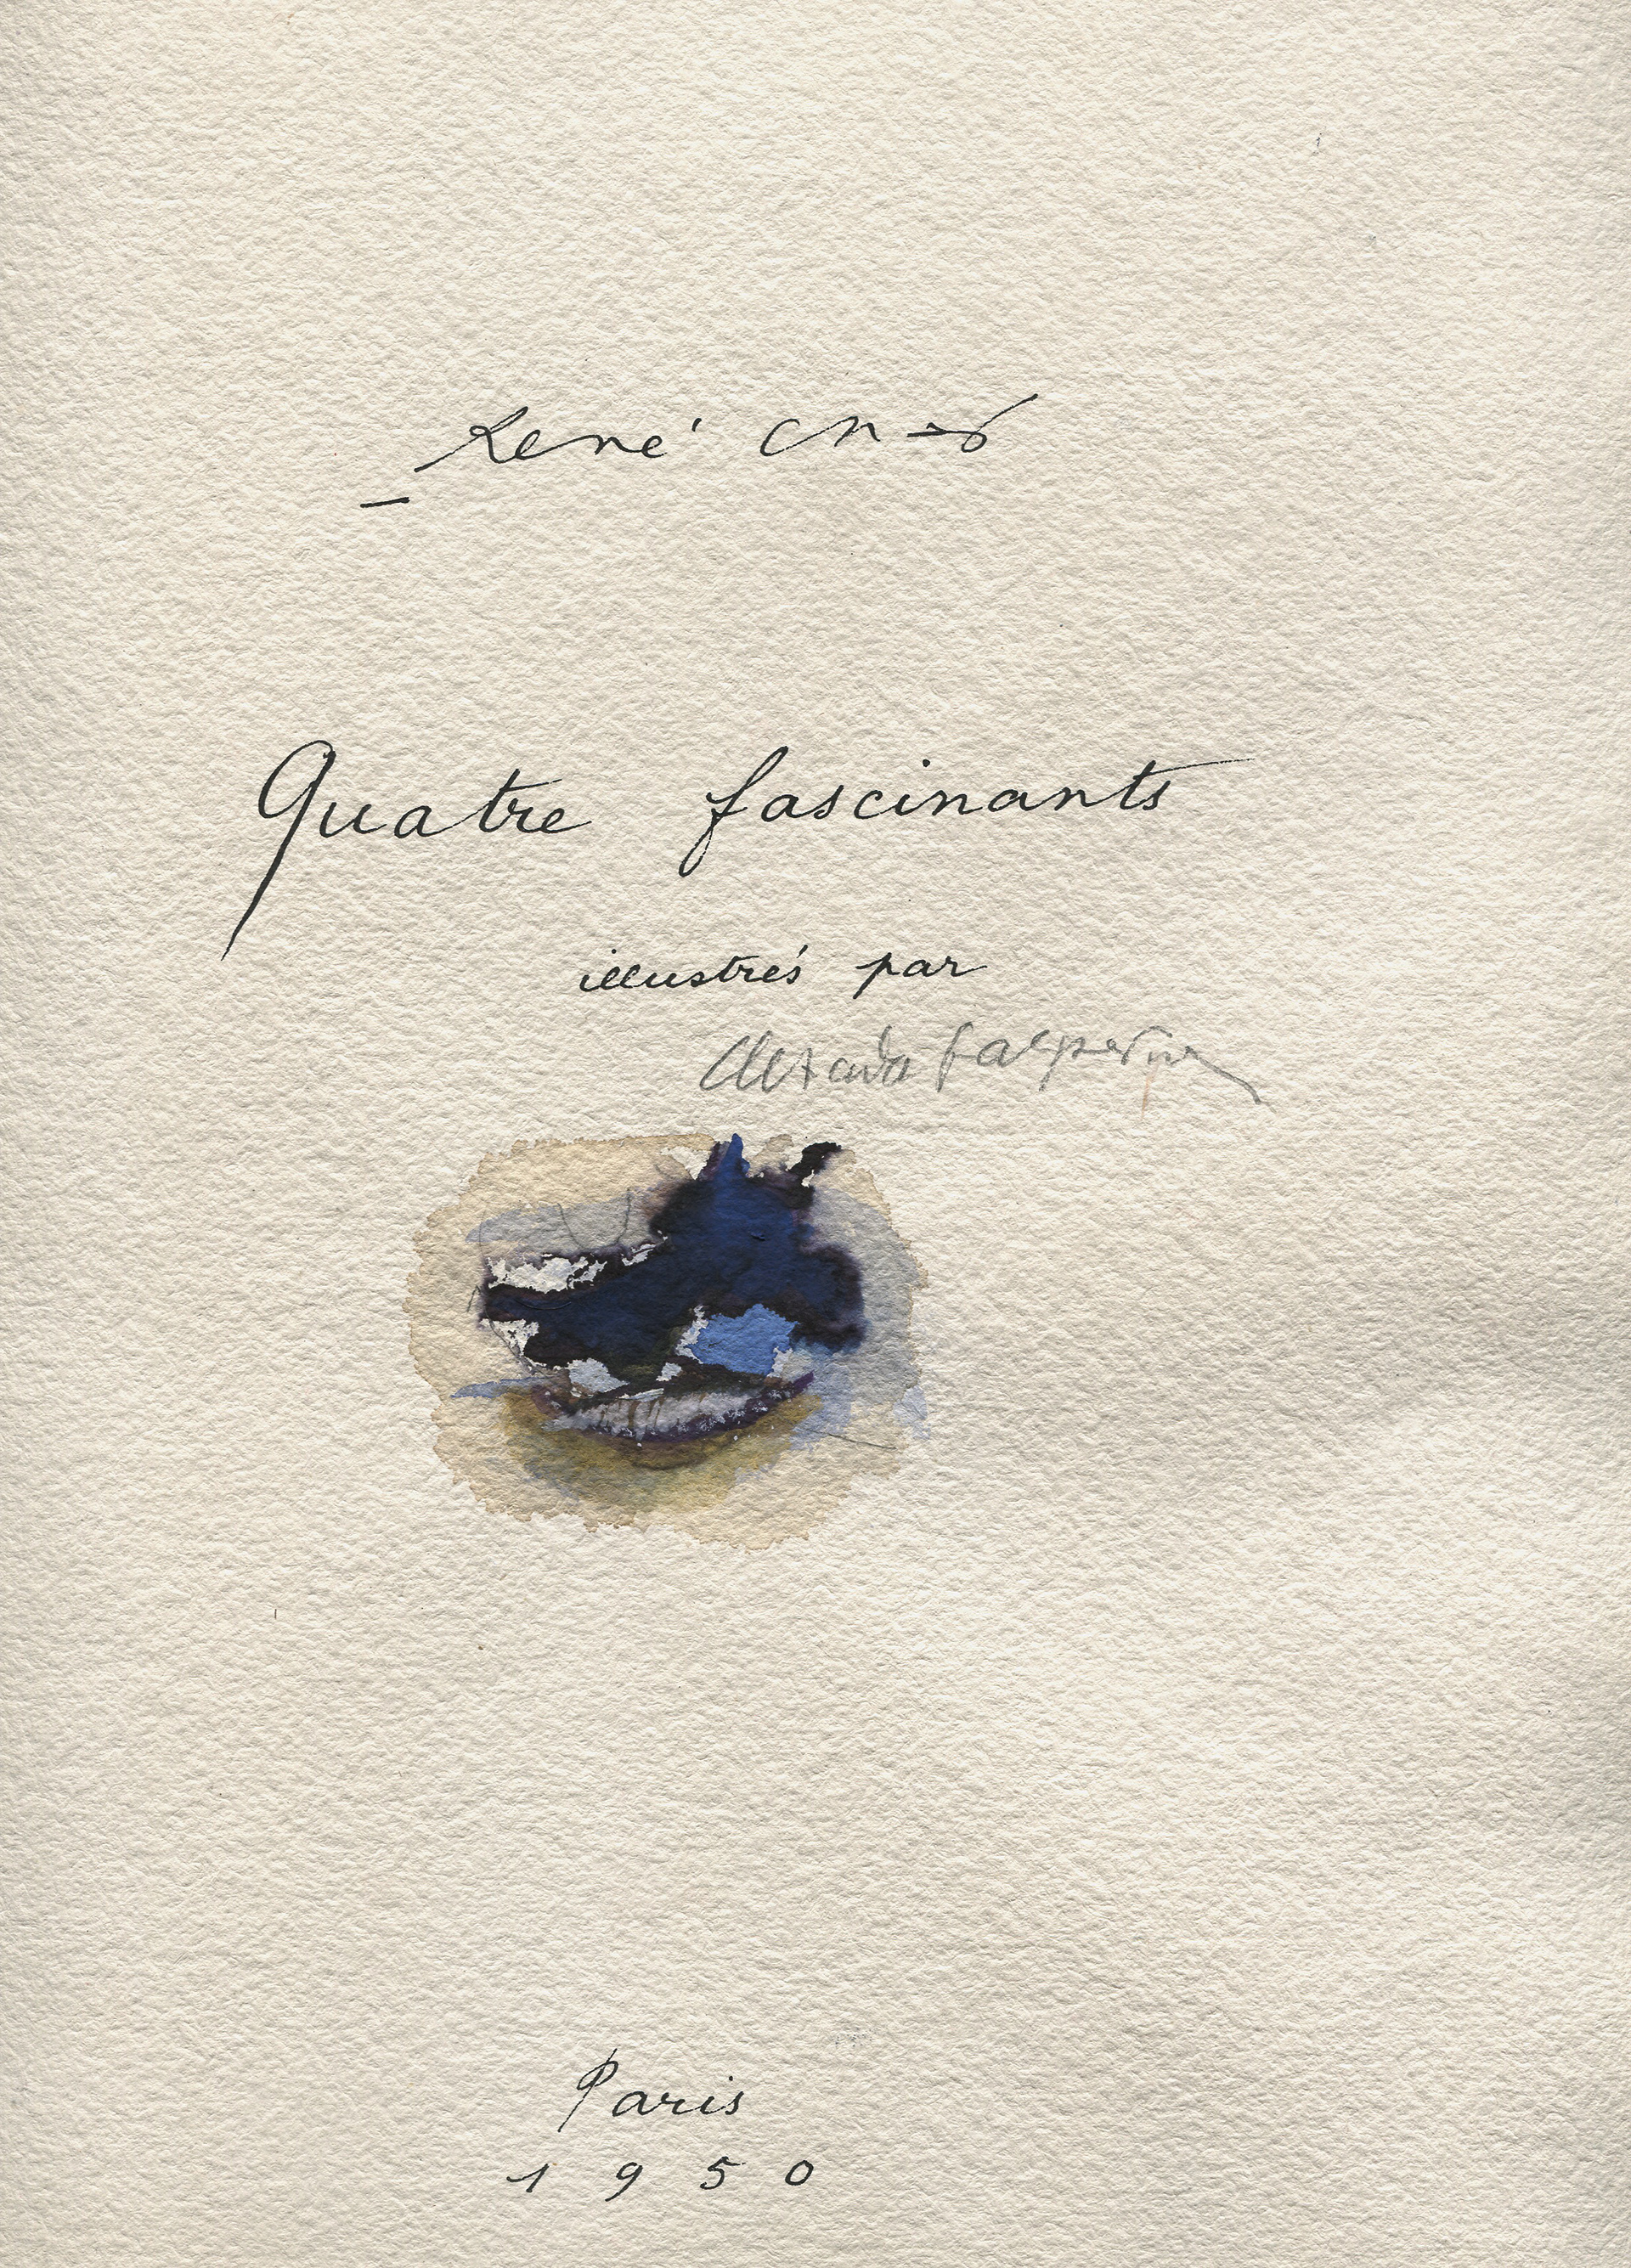 René Char
Quatre fascinants
illustrés par
Alexandre Galperine
Paris
1950